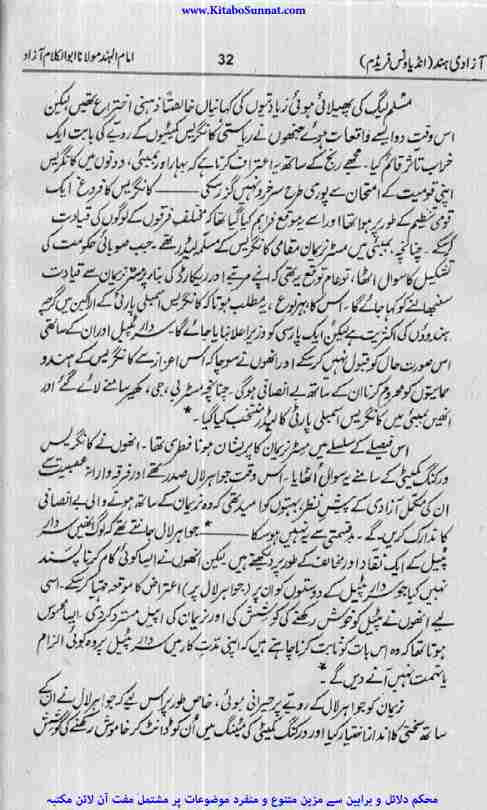 www.KitaboSunnat.com
آزادی ہند (انڈیا ونس فریڈم) 32 امام الہند مولانا ابوالکلام آزاد
مسلم لیگ کی پھیلائی ہوئی زیادتیوں کی کہانیاں خالصتاً ذہنی اختراع تھیں لیکن
اس وقت دو ایسے واقعات ہوئے جنھوں نے ریاستی کانگریس کمیٹیوں کے رویے کی بابت ایک
خراب تاثر قائم کیا۔ مجھے رنج کے ساتھ یہ اعتراف کرنا ہے کہ بہار اور بمبئی، دونوں میں کانگریس
اپنی قومیت کے امتحان سے پوری طرح سرخرو نہیں گزر سکی ——— کانگریس کا فروغ ایک
قومی تنظیم کے طور پر ہوا تھا اور اسے یہ موقع فراہم کیا گیا تھا کہ مختلف فرقوں کے لوگوں کی قیادت
کرسکے۔ چنانچہ بمبئی میں مسٹر نریمان مقامی کانگریس کے مسلمہ لیڈر تھے۔ جب صوبائی حکومت کی
تشکیل کا سوال اٹھا، تو عام توقع یہ تھی کہ اپنے مرتبے اور ریکارڈ کی بناء پر مسٹر نریمان سے قیادت
سنبھالنے کو کہا جائے گا۔ اس کا بہر نوع، یہ مطلب ہوتا کہ کانگریس اسمبلی پارٹی کے اراکین میں گرچہ
ہندوؤں کی اکثریت ہے لیکن ایک پارسی کو وزیر اعلا بنایا جائے گا۔ سردار پٹیل اور ان کے ساتھی
اس صورت حال کو قبول نہیں کرسکے اور انھوں نے سوچا کہ اس اعزاز سے کانگریس کے ہندو
حمایتیوں کو محروم کرنا ان کے ساتھ بے انصافی ہوگی۔ چنانچہ مسٹر بی، جی، کھیر سامنے لائے گئے اور
انھیں بمبئی میں کانگریس اسمبلی پارٹی کا لیڈر منتخب کیا گیا۔ *
اس فیصلے کے سلسلے میں مسٹر نریمان کا پریشان ہونا فطری تھا۔ انھوں نے کانگریس
ورکنگ کمیٹی کے سامنے یہ سوال اٹھایا۔ اس وقت جواہر لال صدر تھے اور فرقہ وارانہ عصبیت سے
ان کی مکمل آزادی کے پیش نظر، بہتوں کو امید تھی کہ وہ نریمان کے ساتھ ہونے والی بے انصافی
کا تدارک کریں گے۔ بدقسمتی سے یہ نہیں ہوسکا ——— * جواہر لال جانتے تھے کہ لوگ انھیں سردار
پٹیل کے ایک نقاد اور مخالف کے طور پر دیکھتے ہیں۔ لیکن انھوں نے ایسا کوئی کام کرنا پسند
نہیں کیا جو سردار پٹیل کے دوستوں کو ان پر (جواہر لال پر) اعتراض کا موقعہ مہیا کرسکے۔ اسی
لیے انھوں نے پٹیل کو خوش رکھنے کی کوشش کی اور نریمان کی اپیل مسترد کردی۔ ایسا محسوس
ہوتا تھا کہ وہ اس بات کو ثابت کرنا چاہتے ہیں کہ اپنی مدت کار میں سردار پٹیل پر وہ کوئی الزام
یا تہمت نہیں آنے دیں گے۔ *
نریمان کو جواہر لال کے رویے پر حیرانی ہوئی، خاص طور پر اس لیے کہ جواہر لال نے ان کے
ساتھ سختی کا انداز اختیار کیا اور ورکنگ کمیٹی کی میٹنگ میں ان کو ڈانٹ کر خاموش رکھنے کی کوشش
محکم دلائل و براہین سے مزین متنوع و منفرد موضوعات پر مشتمل مفت آن لائن مکتبہ